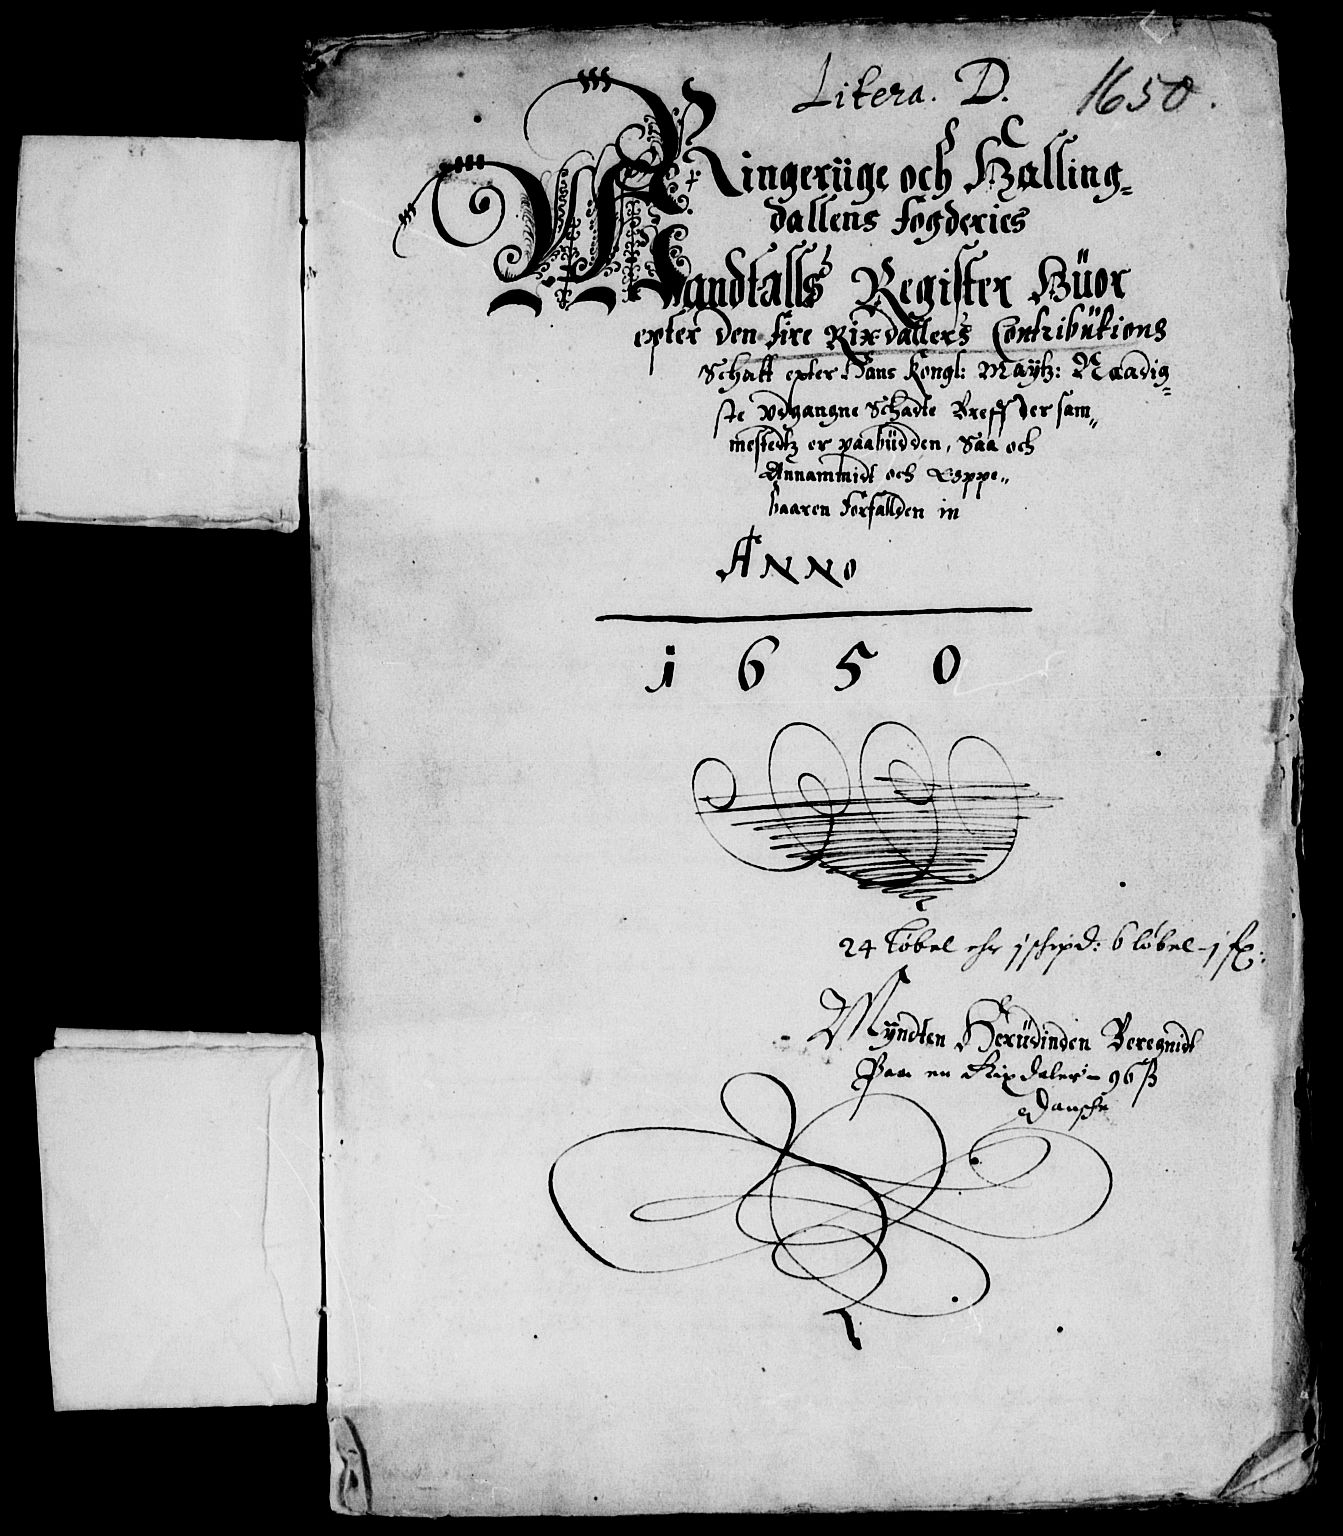 Litera. D. 1650.
Ringerüge och Halling=
dallens fogderies
Mandtalls Register Hüor
epter den fire Rixdallers Contribütions
Schatt epter Hans Kongl: Maÿtz: Naadig=
ste Vdgangne Schadte Breff der sam„
mestedtz er paabüdden, Saa och
Annammidt och Oppe„
baaren forfallden in
ANNO
1650
24 Løbel ehr j schipd: 6 løbel - j
Mÿndten Herüdinden Beregnidt
Paa en Rixdaler - 96 ß
Dansche